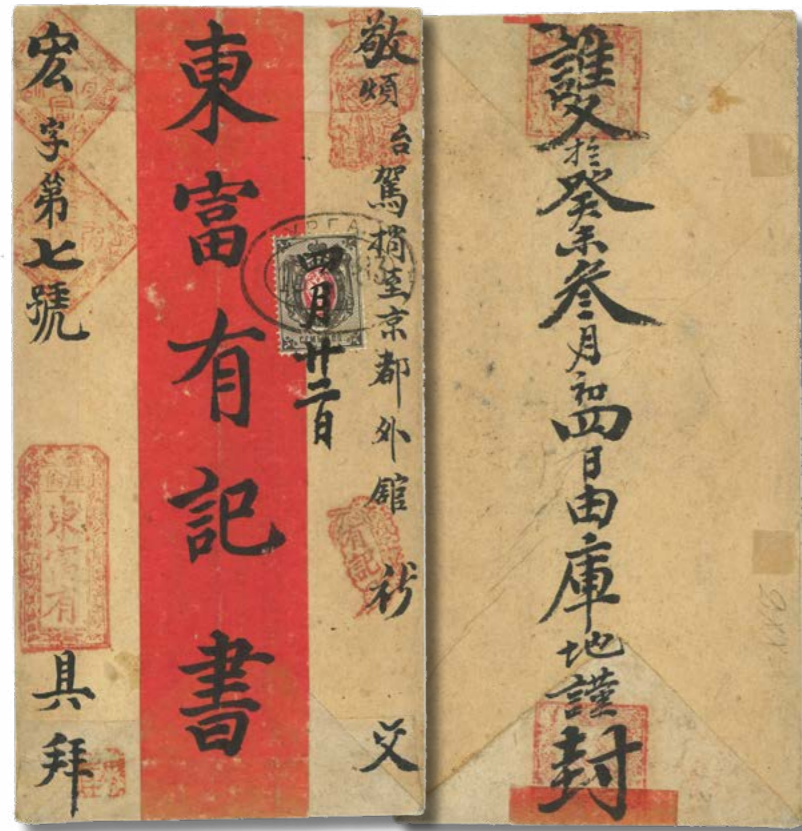 敬煩台駕梢至京都外館 祈 交
四月廿二日
東富有記書
宏字第七號 具拜
東富有
有記
護於癸未叁月初四日由庫地謹封